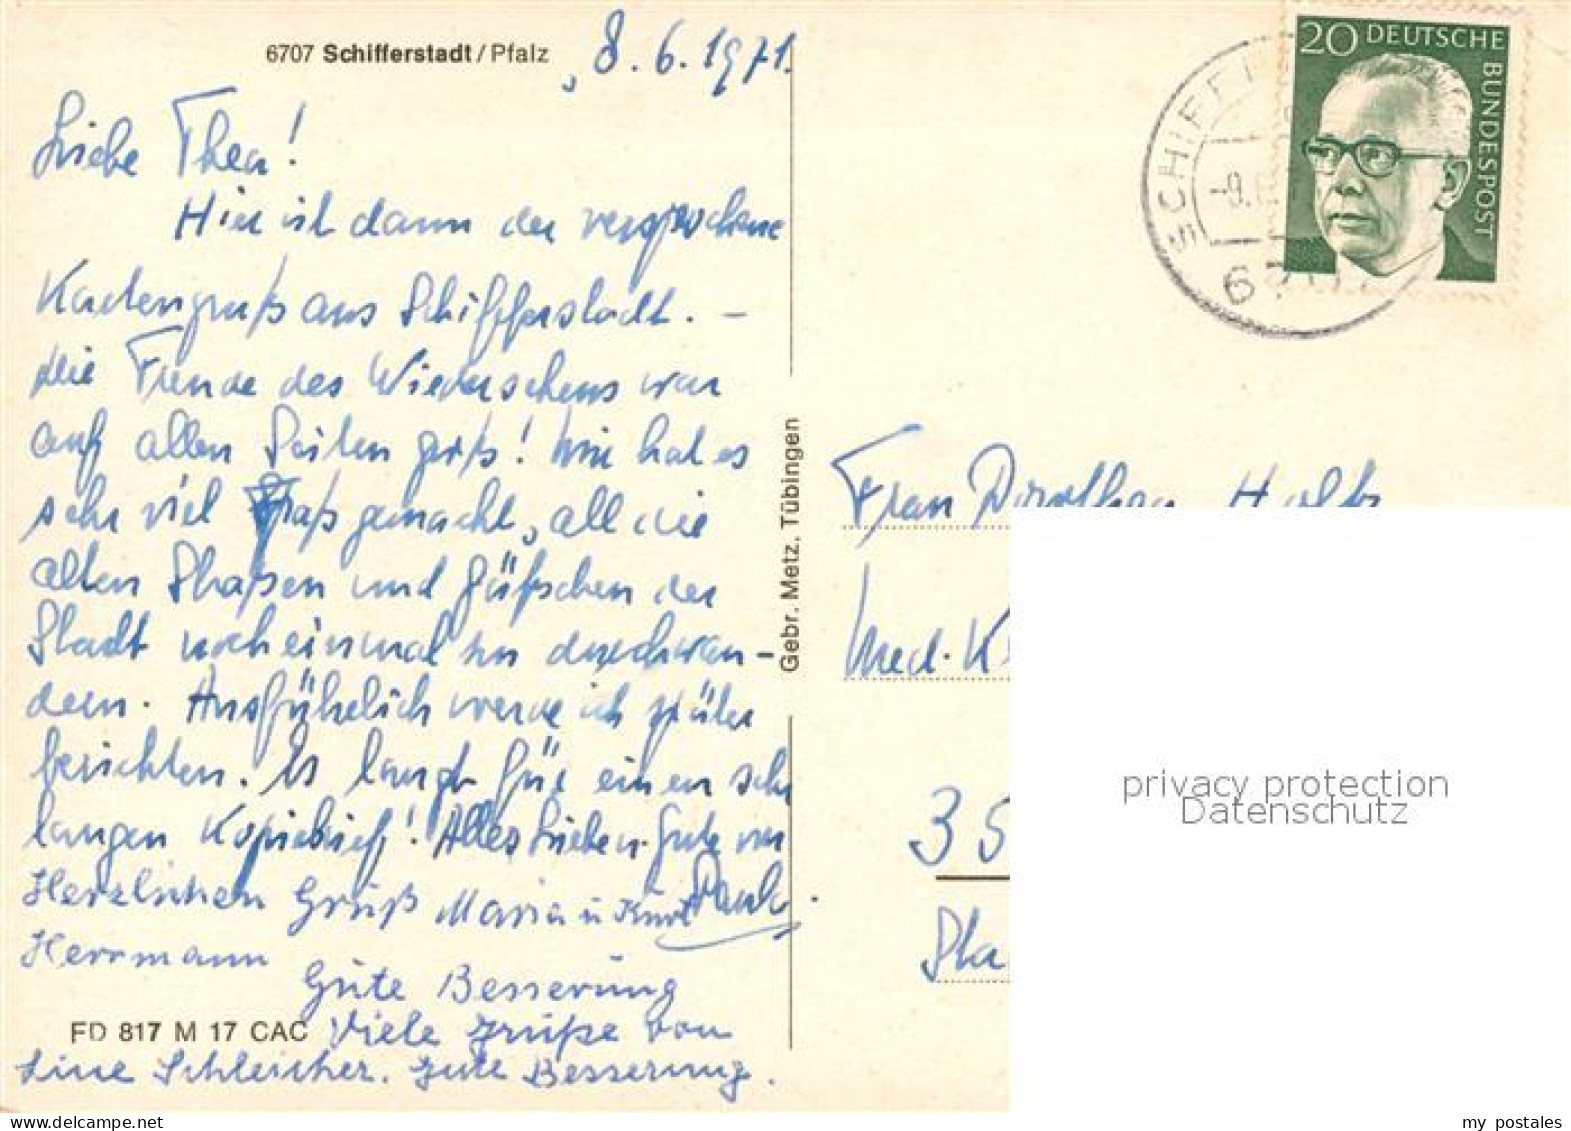 6707 Schifferstadt / Pfalz
8.6.1971.
Liebe Thea!
Hier ist dann der versprochene
Kartengruß aus Schifferstadt. –
Die Freude des Wiedersehens war
auf allen Seiten groß! Mir hat es
sehr viel Spaß gemacht, all die
alten Straßen und Gäßchen der
Stadt noch einmal zu durchwan-
dern. Ausführlich werde ich später
berichten. Es langt für einen sehr
langen Kopierbrief! Alles Liebe u. Gute von
Paula.
Herzlichen Gruß Maria u Kurt
Herrmann
Gute Besserung
Viele Grüße von
Line Schleicher. Gute Besserung.
FD 817 M 17 CAC
Gebr. Metz, Tübingen
20 DEUTSCHE
BUNDESPOST
SCHIFF
-9.
6707
Frau Dorothea
Med. K
35
privacy protection
Datenschutz
my postales